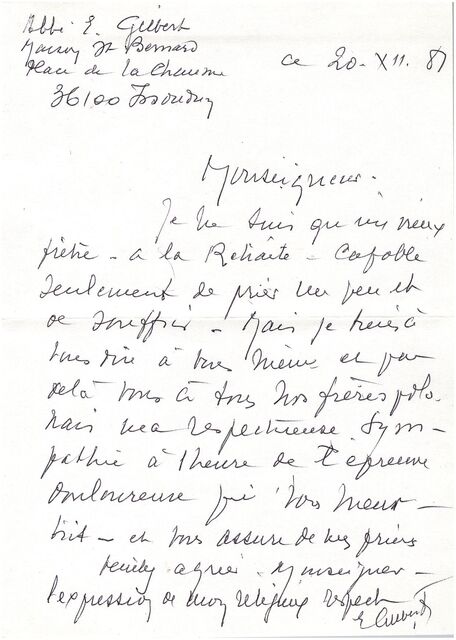 Abbé E. Gilbert
Maison St Bernard
Place de la Chaume
36100 Issoudun
ce 20-XII. 81
Monseigneur.
Je ne suis qu'un vieux
prêtre - à la Retraite - Capable
seulement de prier un peu et
de souffrir - Mais je tiens à
vous dire à vous même et par
delà vous à tous nos frères polo-
nais ma respectueuse sym-
pathie à l'heure de l'épreuve
douloureuse qui vous meur-
trit - et vous assure de mes prières
Veuillez agréer - Monseigneur -
l'expression de mon religieux respect
E Gilbert